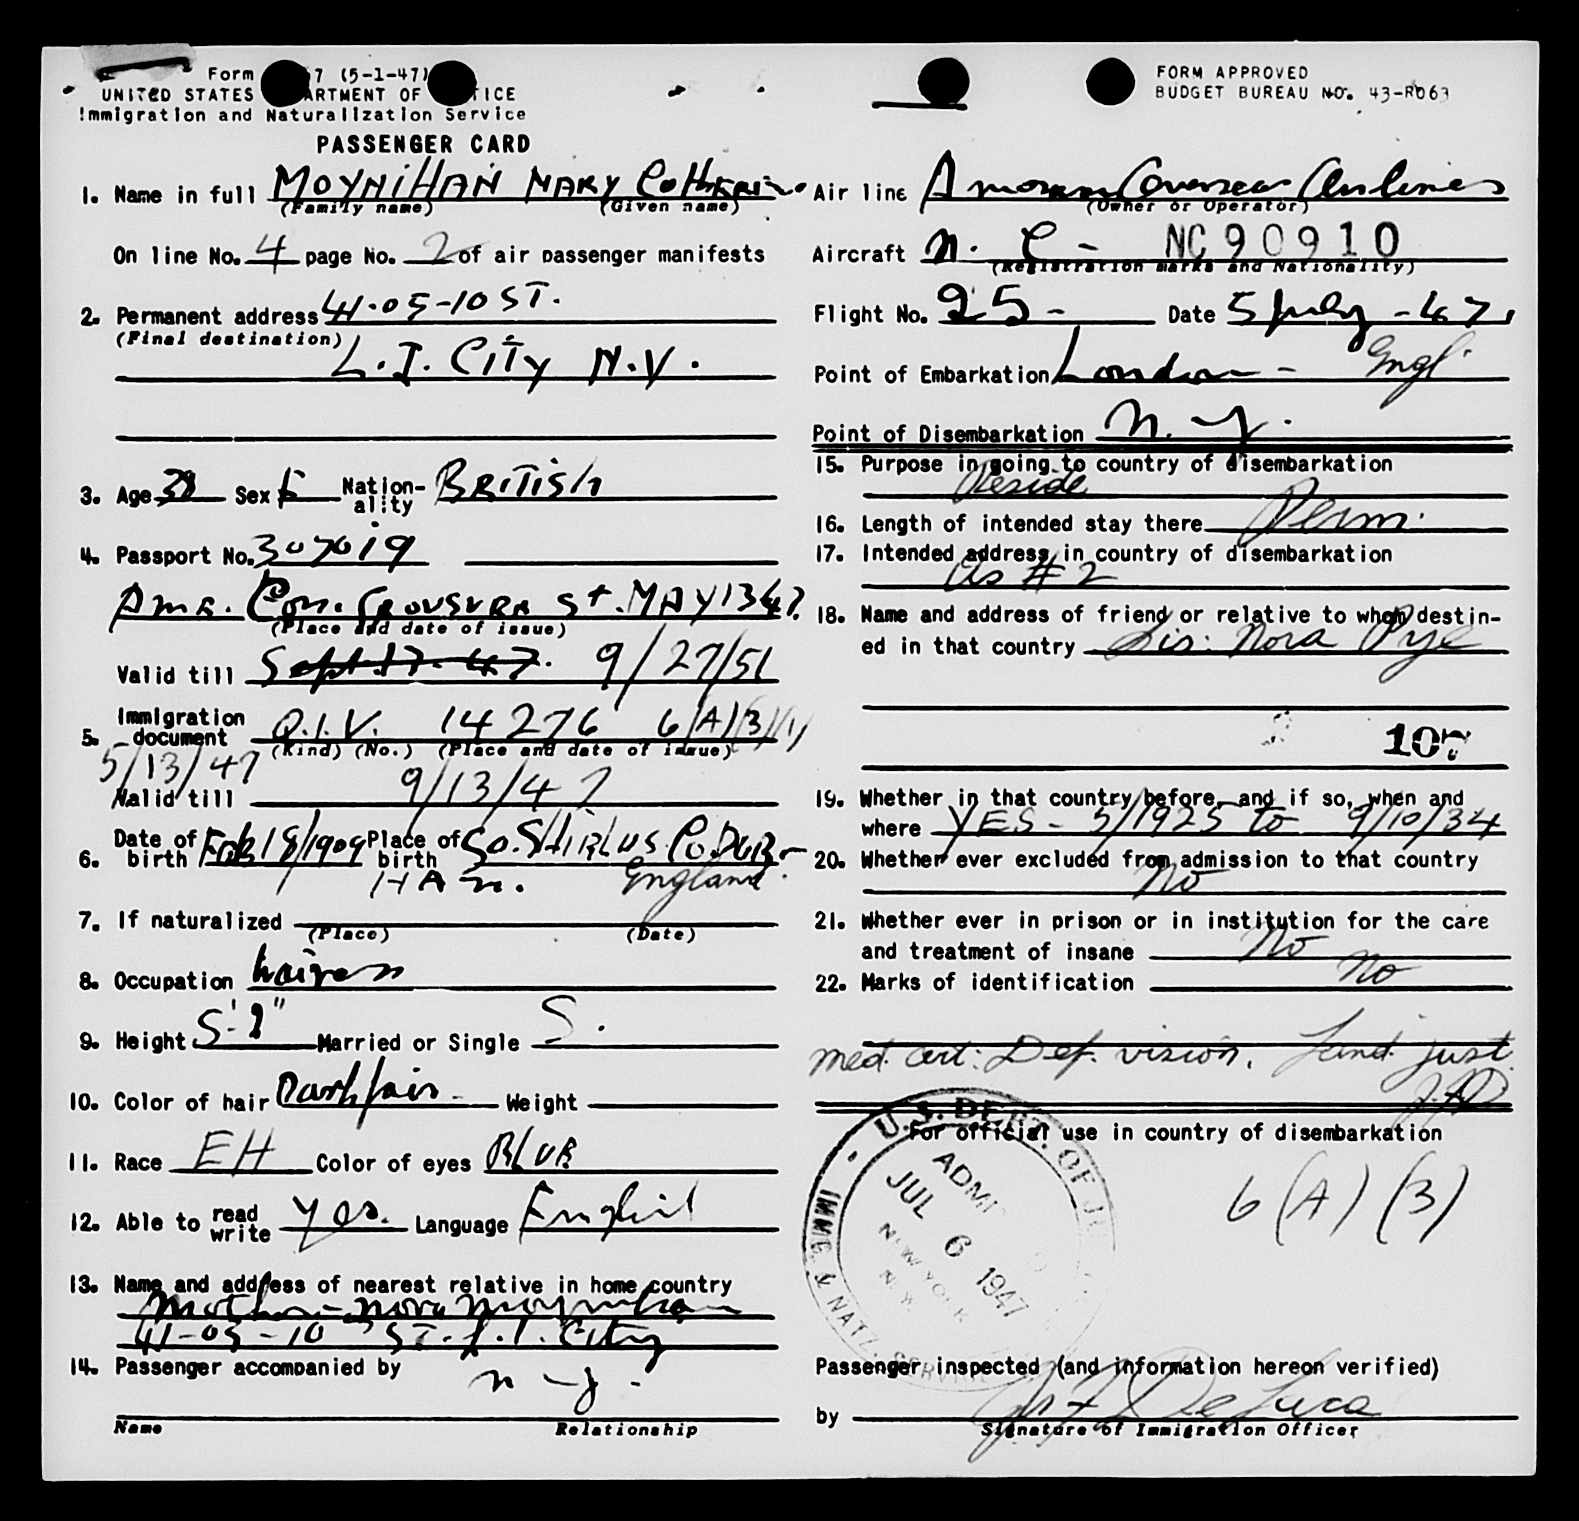 Form 7 (5-1-47)
UNITED STATES ARTMENT OF TICE
Immigration and Naturalization Service
PASSENGER CARD
FORM APPROVED
BUDGET BUREAU NO. 43-R063
1. Name in full MOYNIHAN MARY CATHERINE
(Family name) (Given name)
On line No. 4 page No. 2 of air passenger manifests
2. Permanent address 41-05-10 ST.
(Final destination)
L.I. CITY N.Y.
3. Age 38 Sex F Nation-ality BRITISH
4. Passport No. 307019
AME. CON. GROUSVER St. MAY 13 47.
(Place and date of issue)
Valid till Sept 17. 47. 9/27/51
5. Immigration document Q.I.V. 14276 6(A)(3)(1)
(Kind) (No.) (Place and date of issue)
5/13/47
Valid till 9/13/47
6. Date of birth Feb 18/1909 Place of birth SO. SHIELDS. CO. DUR-
HAM. England.
7. If naturalized
(Place) (Date)
8. Occupation
9. Height 5'- Married or Single S.
10. Color of hair Dark fair - Weight
11. Race EH Color of eyes BLUE
12. Able to read write Yes. Language English
13. Name and address of nearest relative in home country
Mother - Nora Moynihan
41-05-10 ST. L.I. City
N-Y-
14. Passenger accompanied by
Name Relationship
Air line American Overseas Airlines
(Owner or Operator)
Aircraft N. C- NC90910
(Registration marks and Nationality)
Flight No. 25- Date 5 July - 47.
Point of Embarkation London - Engl.
Point of Disembarkation N.Y.
15. Purpose in going to country of disembarkation
Reside
16. Length of intended stay there Perm.
17. Intended address in country of disembarkation
As # 2
18. Name and address of friend or relative to whom destin-
ed in that country Sis: Nora Pye
107
19. Whether in that country before, and if so, when and
where YES- 5/1925 to 9/10/34
20. Whether ever excluded from admission to that country
No
21. Whether ever in prison or in institution for the care
and treatment of insane No
22. Marks of identification No
med. cert: Def. vision. Land. just.
For official use in country of disembarkation
6(A)(3)
U.S. DEPT. OF JU
IMMIG. & NATZ. SERVICE
ADMI
JUL 6 1947
NEW YORK
N.Y.
Passenger inspected (and information hereon verified)
by De Luca
Signature of Immigration Officer